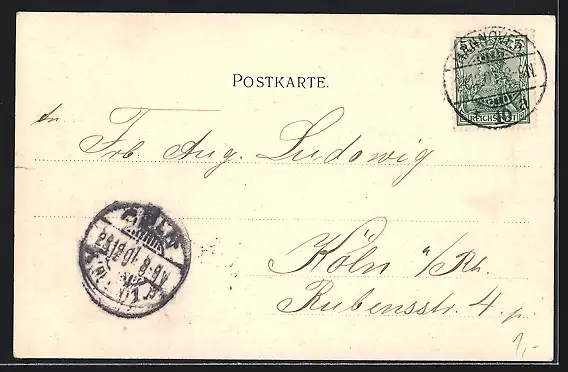 HANNOVER
REICHSPOST
POSTKARTE.
An
Frl. Aug. Ludowig
Köln a/Rh.
Rubensstr. 4 p.
1,-